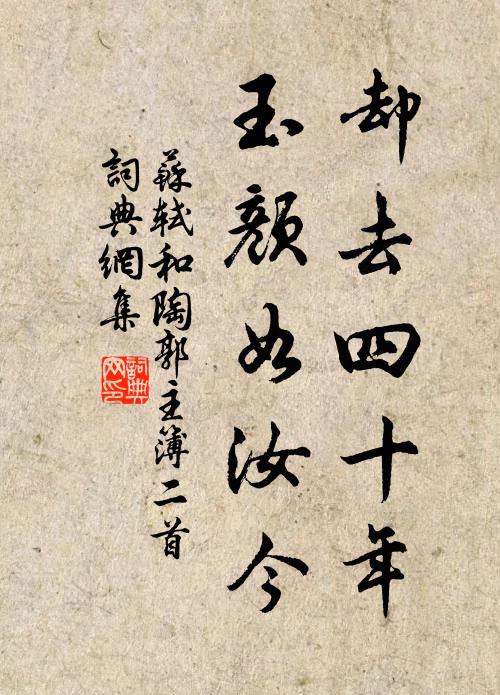 却去四十年
玉顏如汝今
蘇軾和陶郭主簿二首
詞典網集
詞典網印